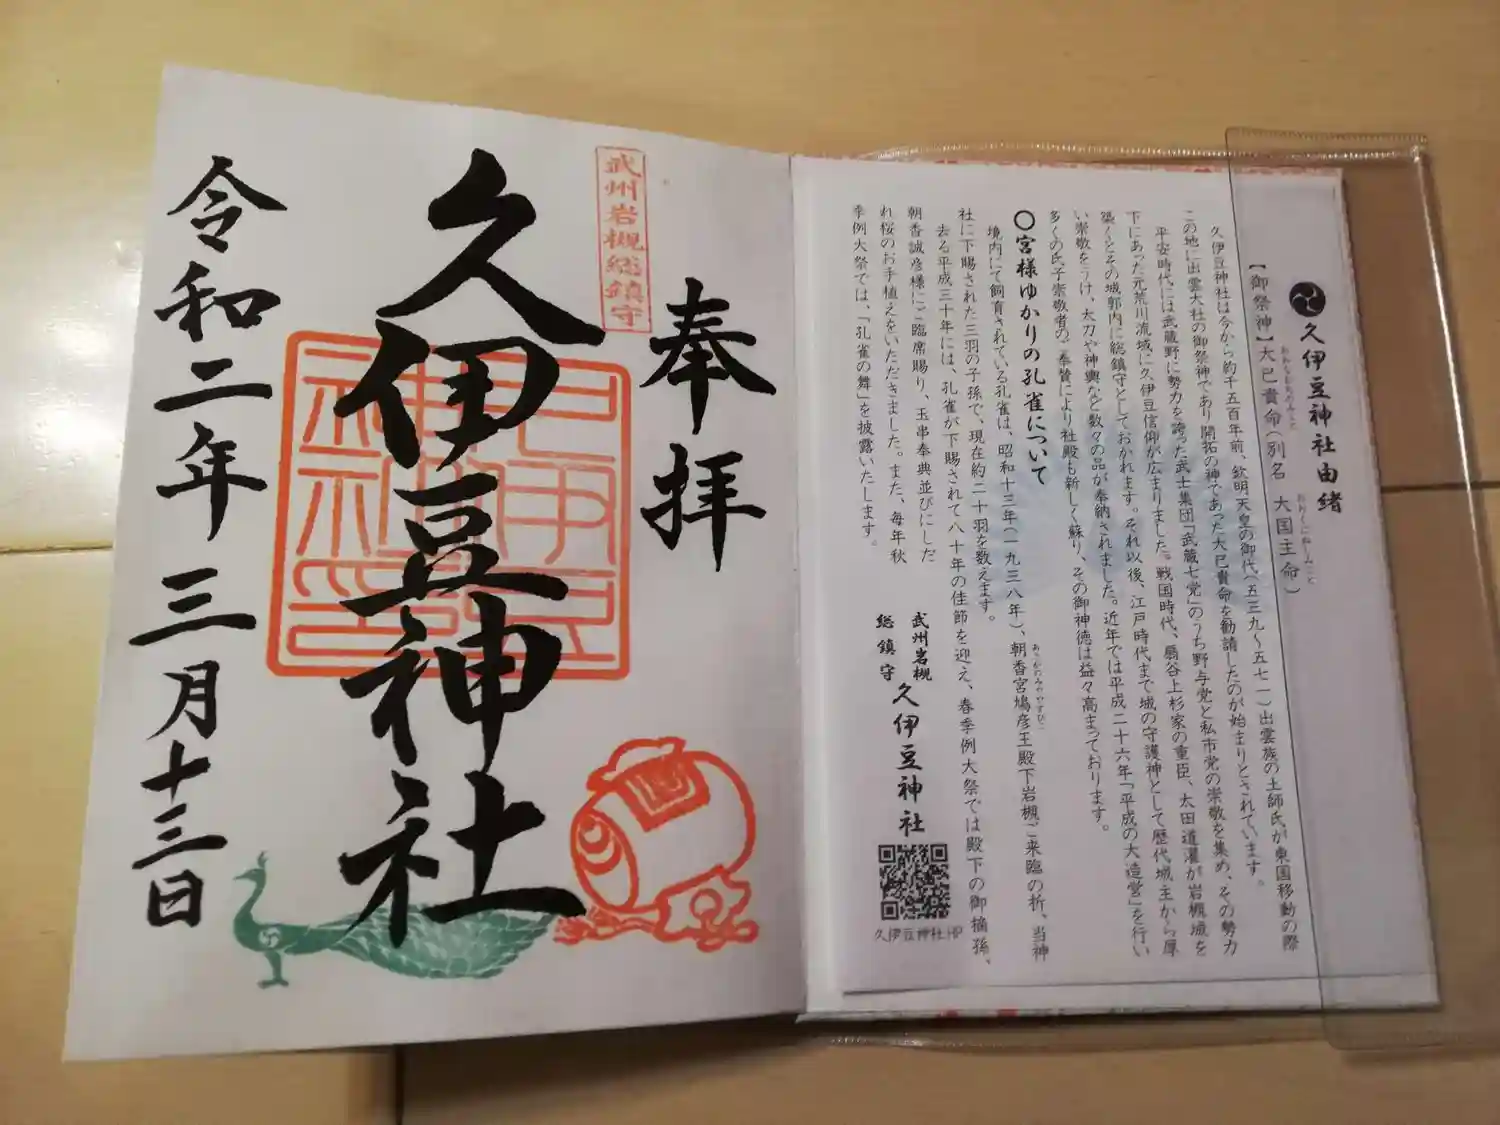 奉拝
武州岩槻総鎮守
久伊豆神社
令和二年三月十三日
久伊豆神社由緒
【御祭神】大己貴命(別名 大国主命)
おおなむちのみこと
おおくにぬしのみこと
久伊豆神社は今から約千五百年前、欽明天皇の御代(五三九~五七一)出雲族の土師氏が東国移動の際
この地に出雲大社の御祭神であり開拓の神であった大己貴命を勧請したのが始まりとされています。
平安時代には武蔵野に勢力を誇った武士集団「武蔵七党」のうち野与党と私市党の崇敬を集め、その勢力
下にあった元荒川流域に久伊豆信仰が広まりました。戦国時代、扇谷上杉家の重臣、太田道灌が岩槻城を
築くとその城郭内に総鎮守としておかれます。それ以後、江戸時代まで城の守護神として歴代城主から厚
い崇敬をうけ、太刀や神輿など数々の品が奉納されました。近年では平成二十六年「平成の大造営」を行い
多くの氏子崇敬者のご奉賛により社殿も新しく蘇り、その御神徳は益々高まっております。
〇宮様ゆかりの孔雀について
境内にて飼育されている孔雀は、昭和十三年(一九三八年)、朝香宮鳩彦王殿下岩槻ご来臨の折、当神
あさかのみややすひこ
社に下賜された三羽の子孫で、現在約二十羽を数えます。
去る平成三十年には、孔雀が下賜されて八十年の佳節を迎え、春季例大祭では殿下の御摘孫、
朝香誠彦様にご臨席賜り、玉串奉奠並びにしだ
れ桜のお手植えをいただきました。また、毎年秋
季例大祭では、「孔雀の舞」を披露いたします。
武州岩槻
総鎮守
久伊豆神社
久伊豆神社HP